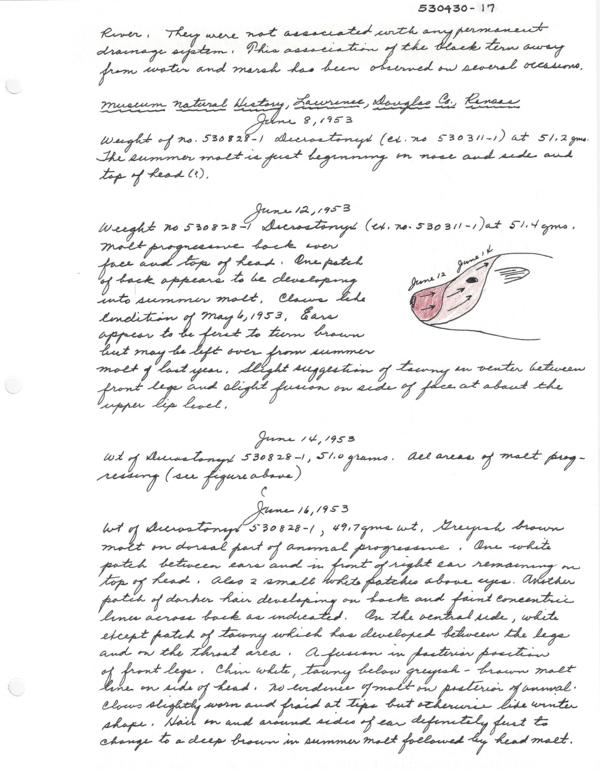 530430-17
River. They were not associated with any permanent
drainage system. This association of the black tern away
from water and marsh has been observed on several occasions.
Museum Natural History, Lawrence, Douglas Co., Kansas
June 8, 1953
Weight of no. 530828-1 Dicrostonyx (ex. no 530311-1) at 51.2 gms.
The summer molt is just beginning on nose and side and
top of head (?).
June 12, 1953
Weight no 530828-1 Dicrostonyx (ex. no. 530311-1) at 51.4 gms.
Molt progressive back over
face and top of head. One patch
of back appears to be developing
into summer molt. Claws like
condition of May 6, 1953. Ears
appear to be first to turn brown
but may be left over from summer
molt of last year. Slight suggestion of tawny on venter between
front legs and slight fusion on side of face at about the
upper lip level.
June 12
June 14
June 14, 1953
Wt of Dicrostonyx 530828-1, 51.0 grams. All areas of molt prog-
ressing (see figure above)
June 16, 1953
Wt of Dicrostonyx 530828-1, 49.7 gms wt. Greyish brown
molt on dorsal part of animal progressive. One white
patch between ears and in front of right ear remaining on
top of head. Also 2 small white patches above eyes. Another
patch of darker hair developing on back and faint concentric
lines across back as indicated. On the ventral side, white
except patch of tawny which has developed between the legs
and on the throat area. A fusion in posterior position
of front legs. Chin white, tawny below greyish-brown molt
line on side of head. No evidence of molt on posterior of animal.
Claws slightly worn and fraid at tips but otherwise like winter
shape. Hair on and around sides of ear definitely first to
change to a deep brown in summer molt followed by head molt.